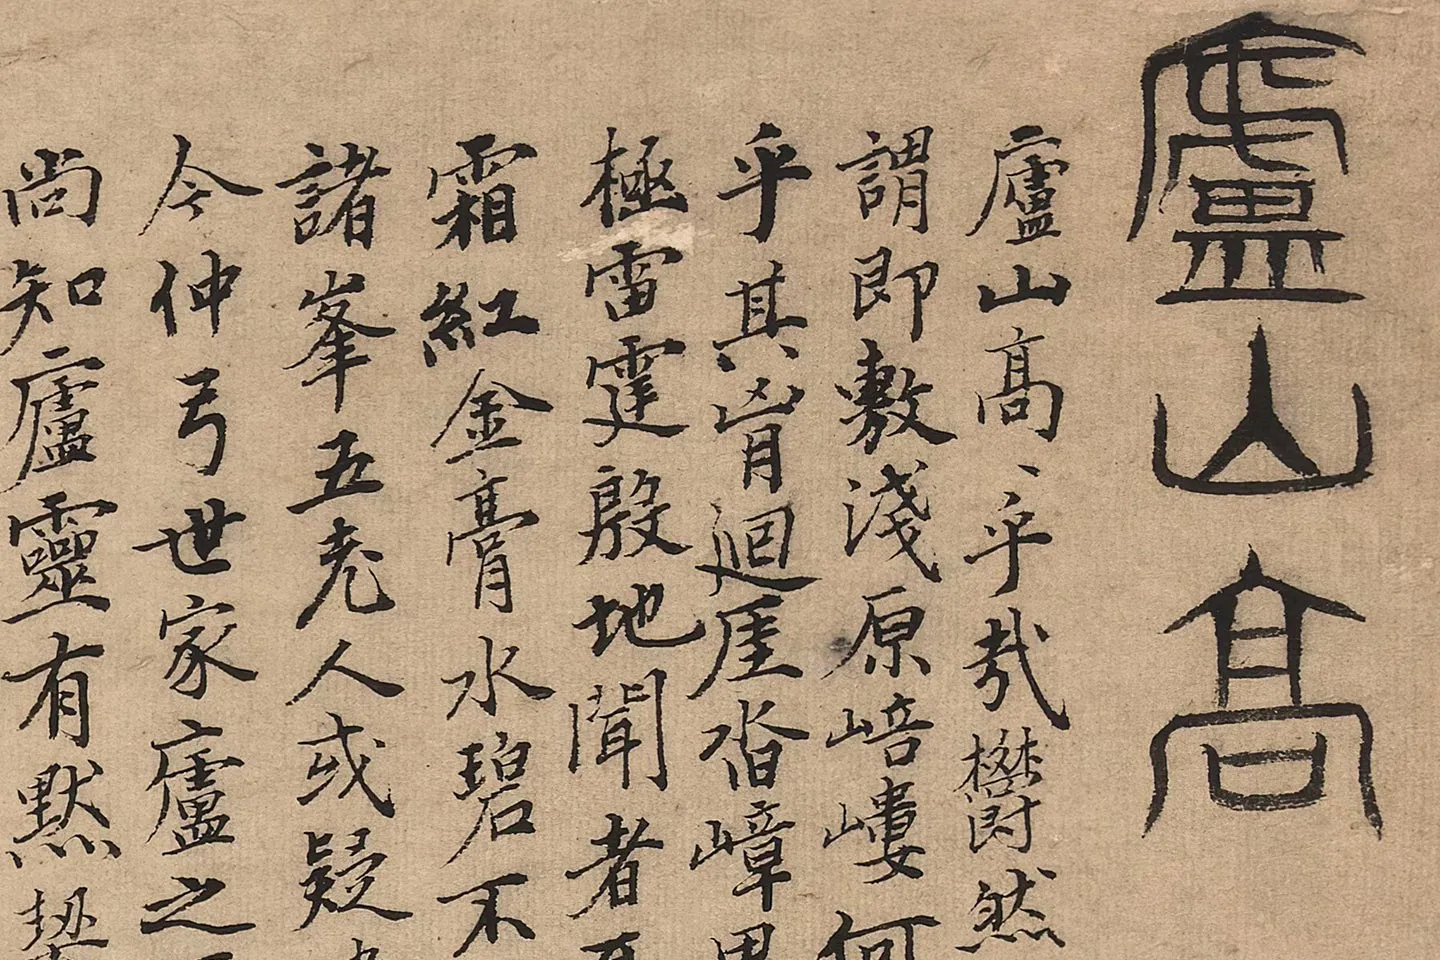 廬山高
廬山高、乎哉鬱然
謂即敷淺原㟝嶁何
乎其胷迴厓沓嶂
極雷霆殷地聞者
霜紅金膏水碧不
諸峯五老人或疑
今仲弓世家廬之
尚知廬靈有默契